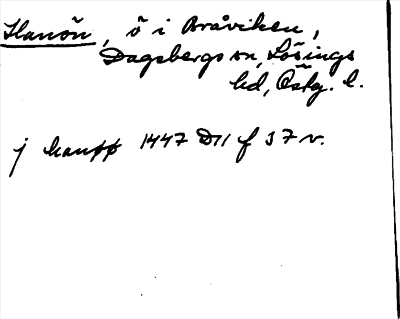 Hanön, ö i Bråviken,
Dagsbergs sn, Lösings
hd, Östg. l.
j hanøø 1447 D11 f 37 v.